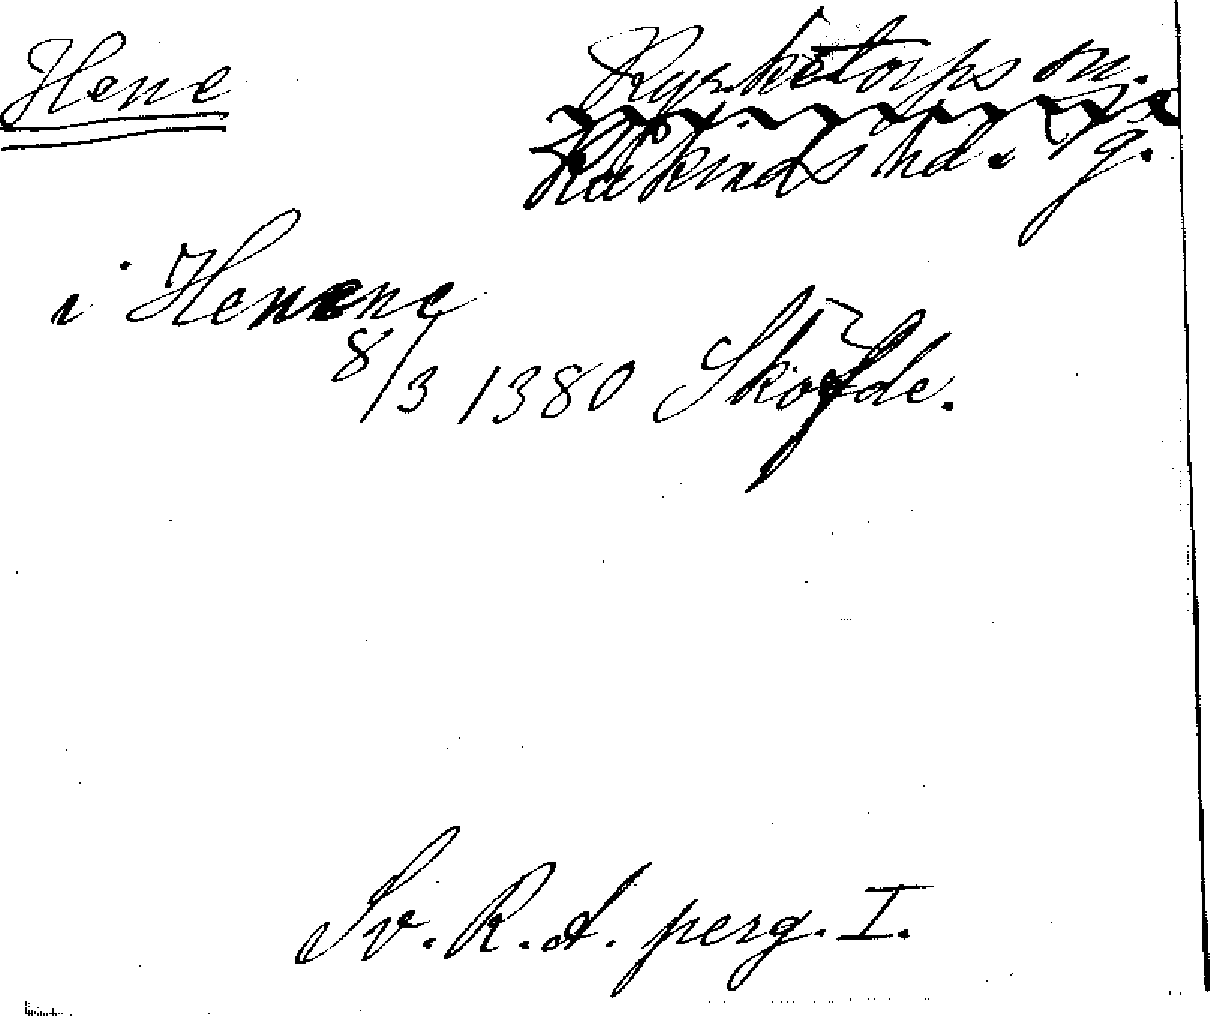 Hene
Kyrketorps sn.
Kåkinds hd. Vg.
i Henene
8/3 1380 Sköfde.
Sv. R. A. perg. I.